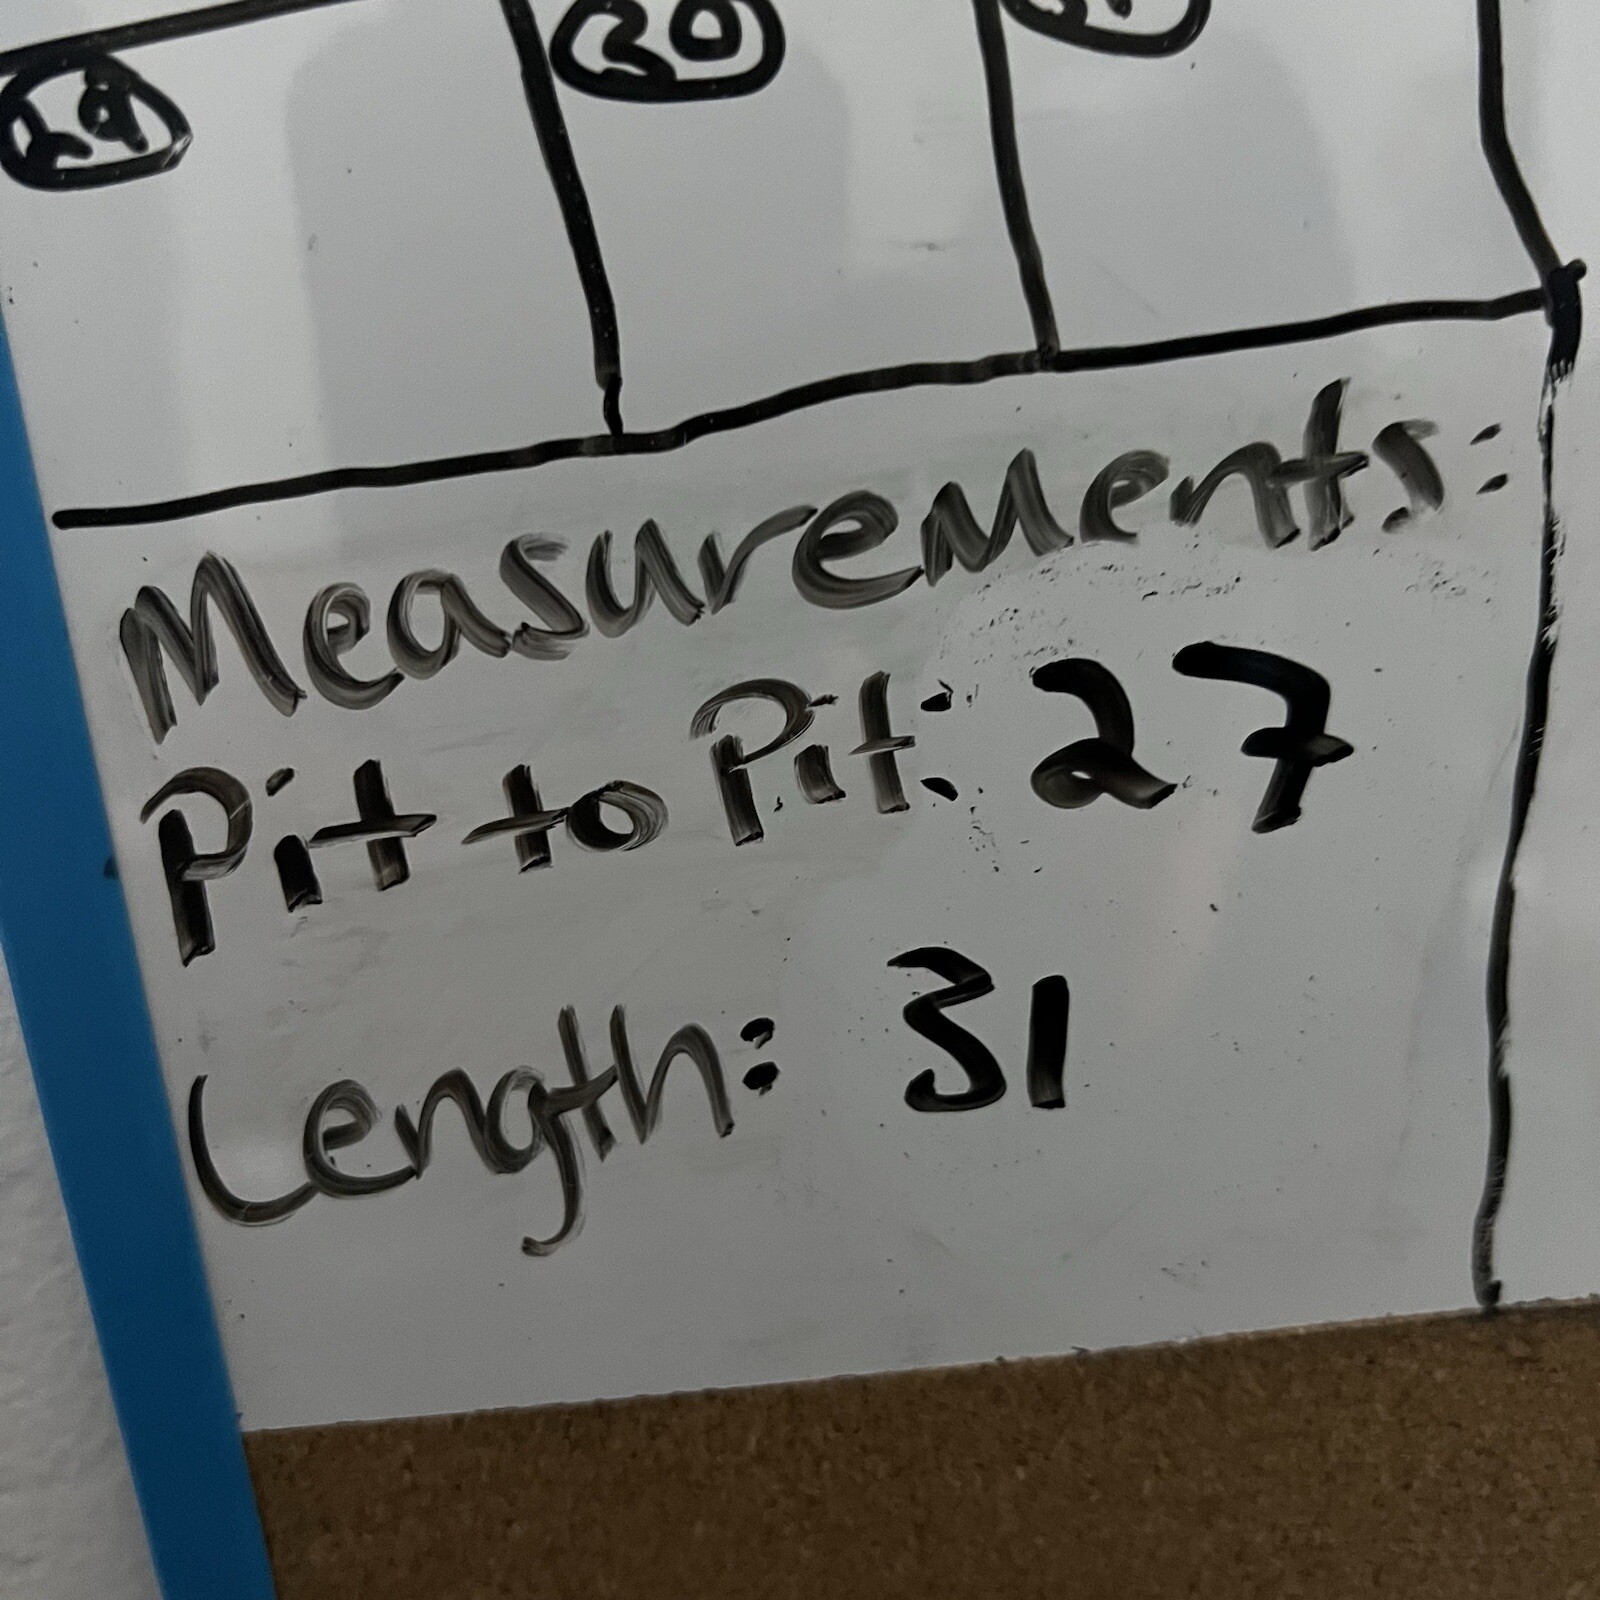 29 30
Measurements:
Pit to Pit: 27
Length: 31